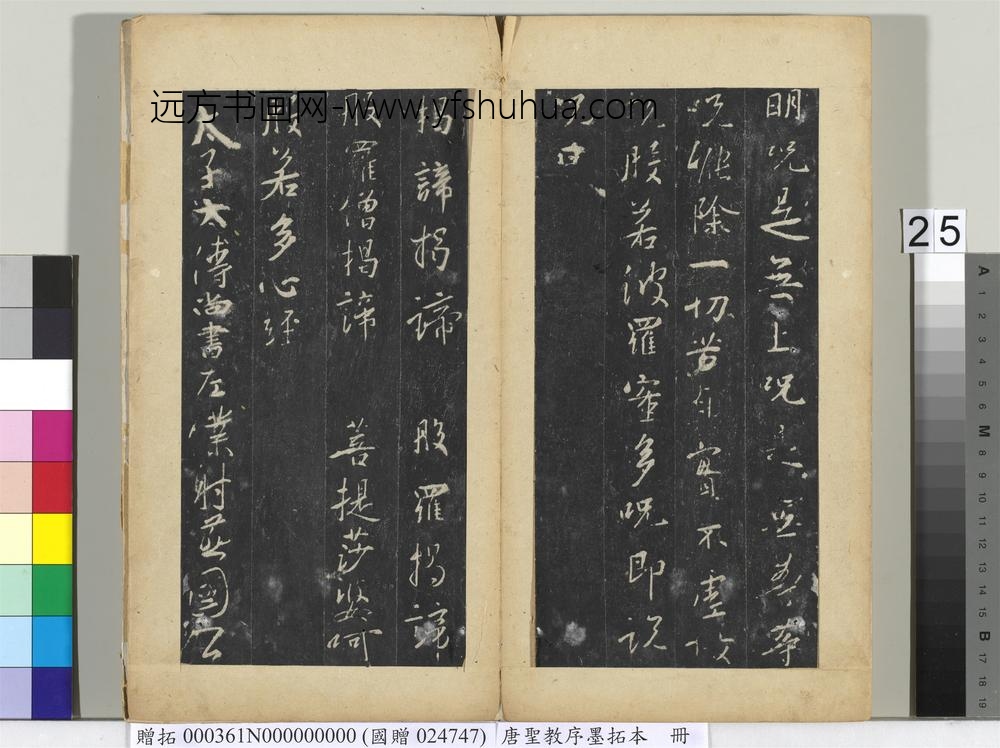 远方书画网-www.yfshuhua.com
明咒是無上咒是無等等
咒能除一切苦真實不虛故
說般若波羅蜜多咒即說
咒曰
揭諦揭諦 般羅揭諦
般羅僧揭諦 菩提莎婆呵
般若多心經
太子太傅尚書左僕射燕國公
25
A 1 2 3 4 5 6 M 8 9 10 11 12 13 14 15 B 17 18 19
贈拓 000361N000000000 (國贈 024747) 唐聖教序墨拓本 冊